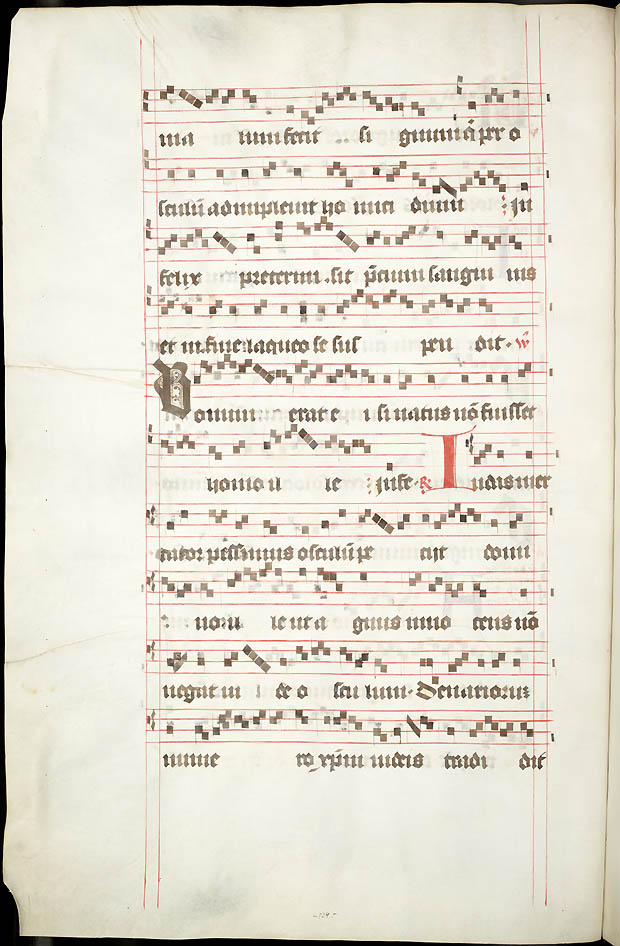 ma num fecit .. si gnum q̃ per o
sculũ adimpleuit ho mici dium : In
felix pretermi .sit p̃cium sangui nis
et in fine laqueo se sus pen dit · ℣
Bonum erat e si natus nõ fuisset
homo il le : infe ℟ Iudas mer
cator pessimus osculũ pe ciit domi
: num ille ut a gnus inno cens nõ
negauit iu de o sculum · Denariorum
nume ro xp̃m iudeis tradi dit